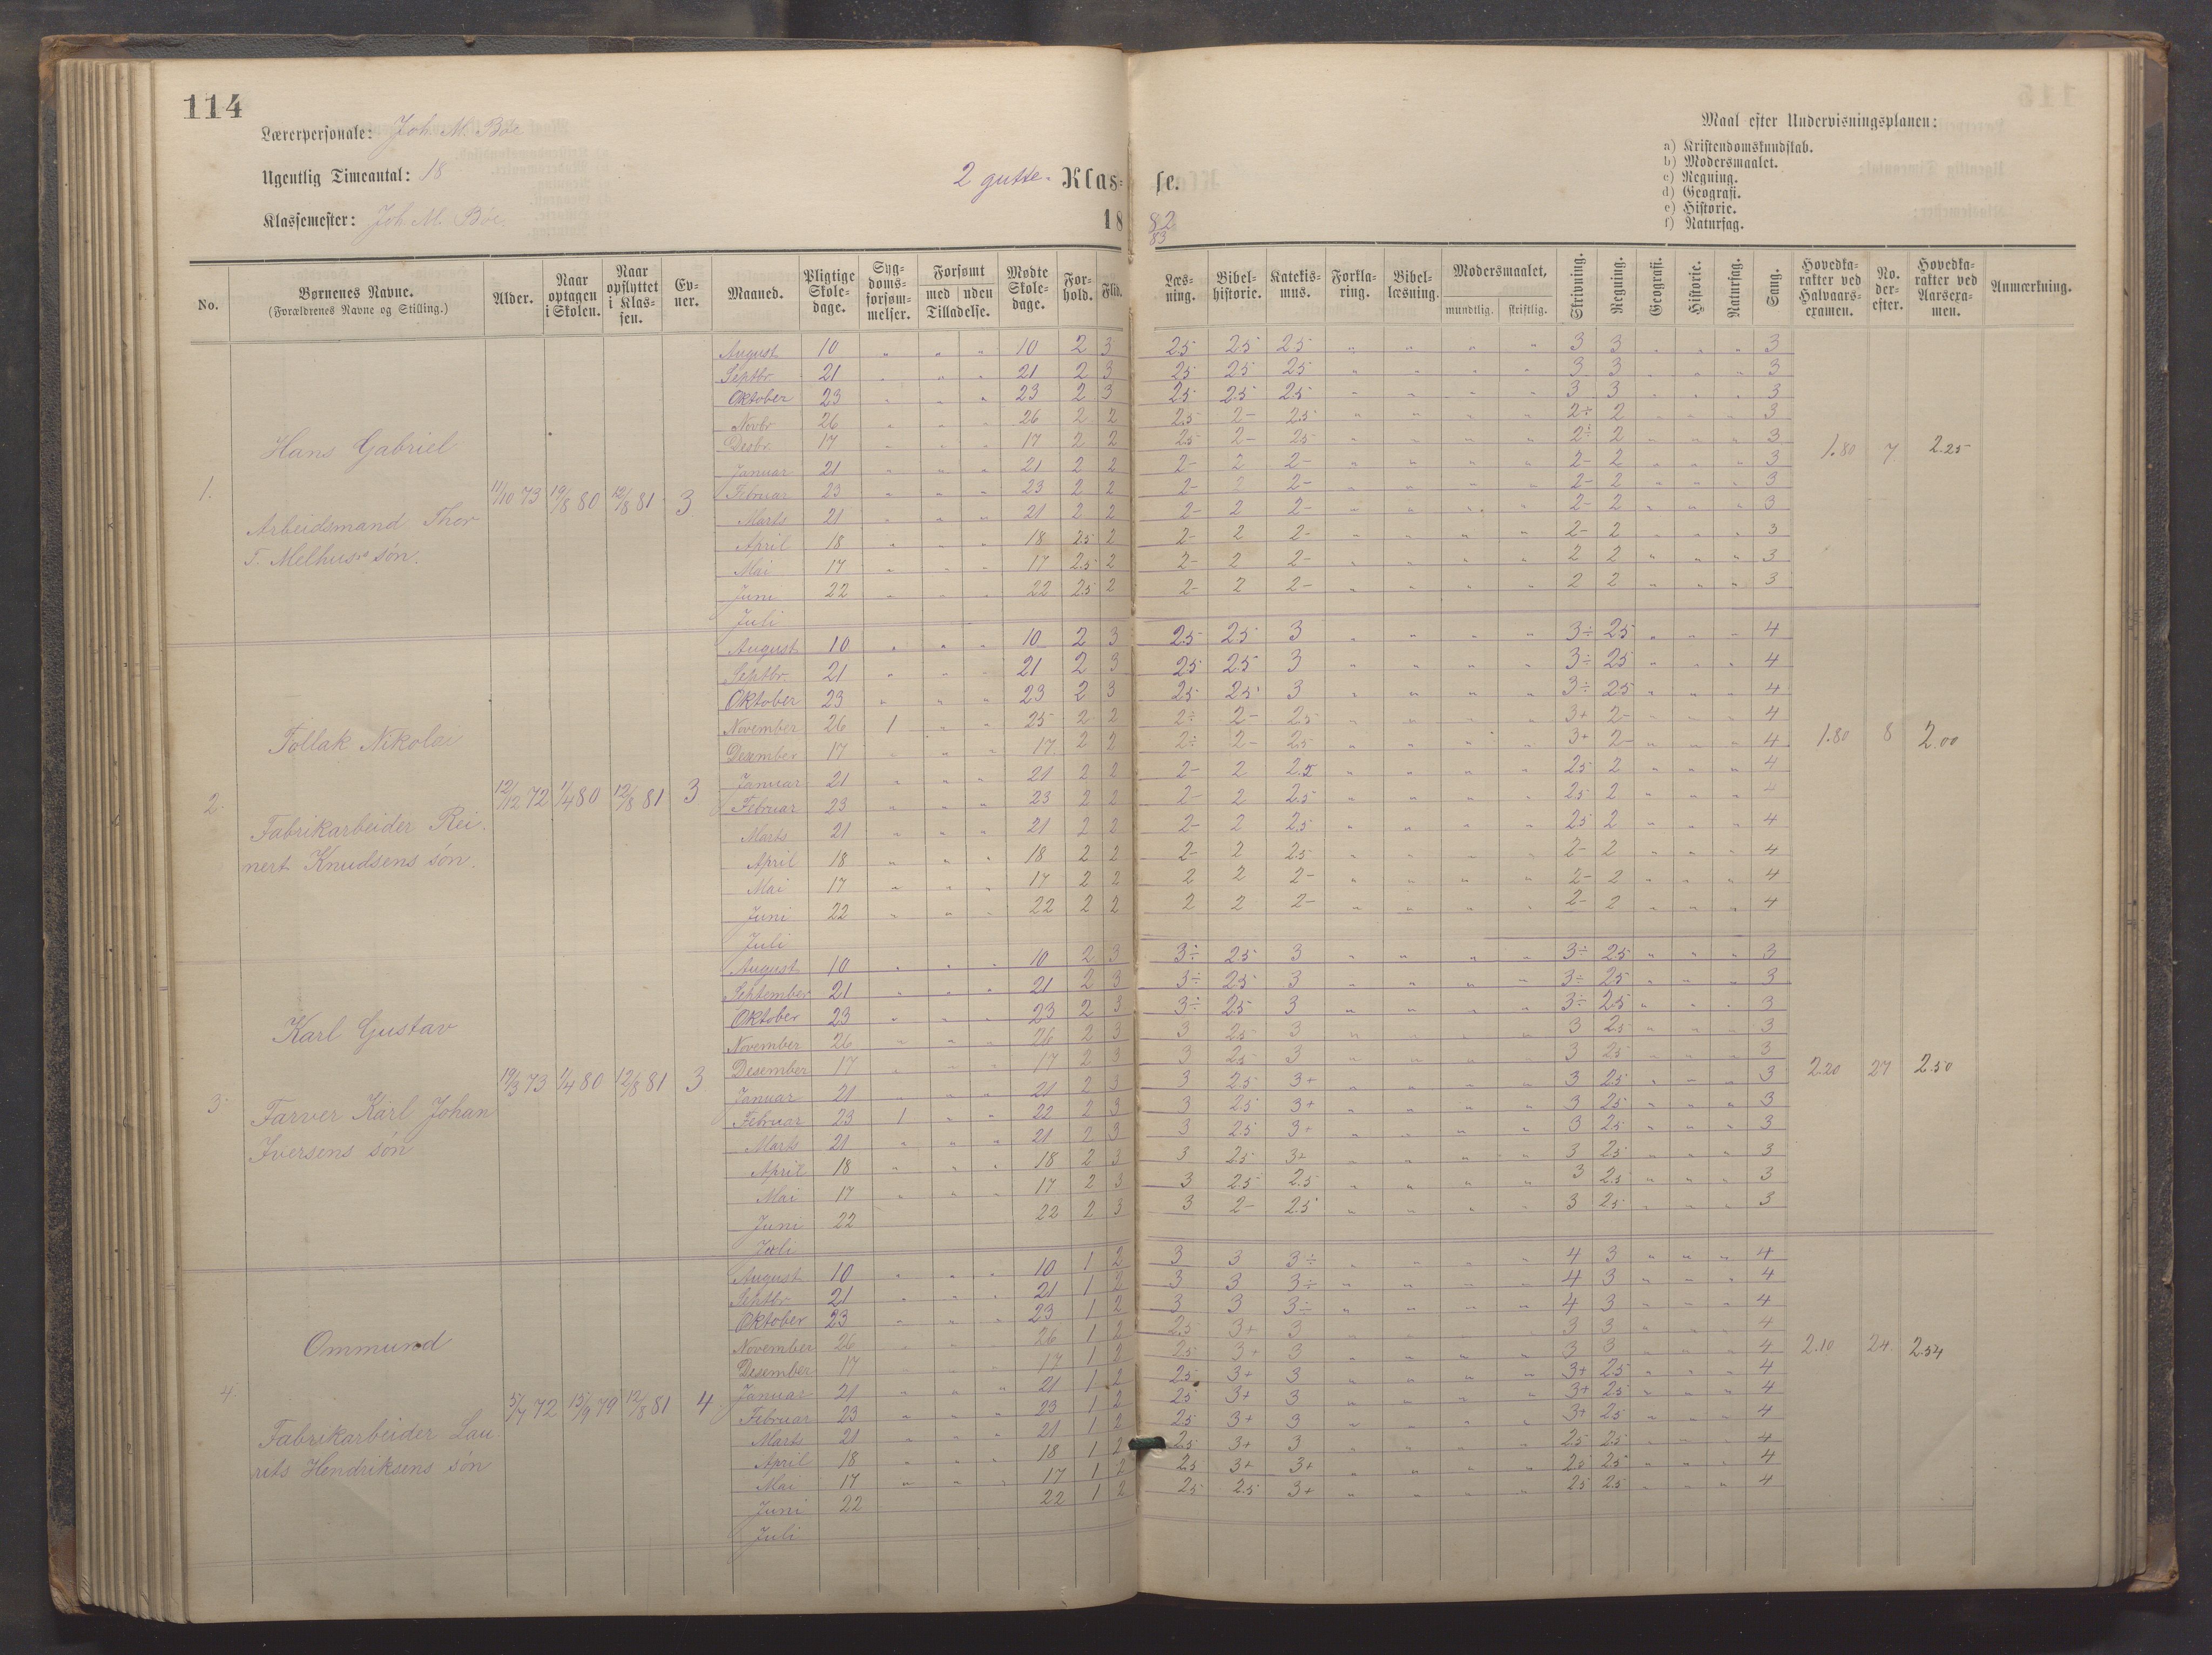 114
Lærerpersonale: Joh. M. Bøe
Ugentlig Timeantal: 18
Klassemester: Joh M. Bøe
2 gutte- Klas=
se.
18
82
83
Maal efter Undervisningsplanen:
a) Kristendomskundskab.
b) Modersmaalet.
c) Regning.
d) Geografi.
e) Historie.
f) Naturfag.
No. | Børnenes Navne. (Forældrenes Navne og Stilling.) | Alder. | Naar optagen i Skolen. | Naar opflyttet i Klassen. | Evner. | Maaned. | Pligtige Skoledage. | Sygdomsforsømmelser. | Forsømt med uden Tilladelse. | Mødte Skoledage. | Forhold. | Flid. | Læsning. | Bibelhistorie. | Katekismus. | Forklaring. | Bibellæsning. | Modersmaalet, mundtlig. skriftlig. | Skrivning. | Regning. | Geografi. | Historie. | Naturfag. | Sang. | Hovedkarakter ved Halvaarsexamen. | No. derefter. | Hovedkarakter ved Aarsexamen. | Anmærkning.
1. Hans Gabriel
Arbeidsmand Thor
T. Melhus's søn.
11/10 73 | 19/8 80 | 12/8 81 | 3 | 1.80 | 7 | 2.25
August 10 " " " 10 2 3 25 25 25 " " " " 3 3 " " " 3
Septbr. 21 " " " 21 2 3 25 25 25 " " " " 3 3 " " " 3
Oktober 23 " " " 23 2 3 25 25 25 " " " " 3 3 " " " 3
Novbr 26 " " " 26 2 2 25 2- 25 " " " " 2÷ 2 " " " 3
Desbr. 17 " " " 17 2 2 25 2- 25 " " " " 2÷ 2 " " " 3
Januar 21 " " " 21 2 2 2- 2 2- " " " " 2- 2 " " " 3
Februar 23 " " " 23 2 2 2- 2 2- " " " " 2- 2 " " " 3
Marts 21 " " " 21 2 2 2- 2 2- " " " " 2- 2 " " " 3
April 18 " " " 18 2.5 2 2- 2 2- " " " " 2- 2 " " " 3
Mai 17 " " " 17 2.5 2 2- 2 2- " " " " 2 2 " " " 3
Juni 22 " " " 22 2.5 2 2- 2 2- " " " " 2 2 " " " 3
Juli
2. Tollak Nikolai
Fabrikarbeider Rei-
nert Knudsens søn.
12/12 72 | 1/4 80 | 12/8 81 | 3 | 1.80 | 8 | 2.00
August 10 " " " 10 2 3 25 25 3 " " " " 3÷ 25 " " " 4
Septbr. 21 " " " 21 2 3 25 25 3 " " " " 3÷ 25 " " " 4
Oktober 23 " " " 23 2 3 25 25 3 " " " " 3÷ 25 " " " 4
November 26 1 " " 25 2 2 2÷ 2- 25 " " " " 3+ 2- " " " 4
Desember 17 " " " 17 2 2 2÷ 2- 25 " " " " 3+ 2- " " " 4
Januar 21 " " " 21 2 2 2- 2 2.5 " " " " 25 2 " " " 4
Februar 23 " " " 23 2 2 2- 2 25 " " " " 25 2 " " " 4
Marts 21 " " " 21 2 2 2- 2 25 " " " " 25 2 " " " 4
April 18 " " " 18 2 2 2- 2 25 " " " " 2- 2 " " " 4
Mai 17 " " " 17 2 2 2 2 2- " " " " 2- 2 " " " 4
Juni 22 " " " 22 2 2 2 2 2- " " " " 2- 2 " " " 4
Juli
3. Karl Gustav
Farver Karl Johan
Iversens søn
19/3 73 | 1/4 80 | 12/8 81 | 3 | 2.20 | 27 | 2.50
August 10 " " " 10 2 3 3÷ 25 3 " " " " 3÷ 25 " " " 3
September 21 " " " 21 2 3 3÷ 25 3 " " " " 3÷ 25 " " " 3
Oktober 23 " " " 23 2 3 3÷ 25 3 " " " " 3÷ 25 " " " 3
November 26 " " " 26 2 3 3 25 3 " " " " 3 25 " " " 3
Desember 17 " " " 17 2 3 3 25 3 " " " " 3 25 " " " 3
Januar 21 " " " 21 2 3 3 25 3+ " " " " 3 25 " " " 3
Februar 23 1 " " 22 2 3 3 25 3+ " " " " 3 25 " " " 3
Marts 21 " " " 21 2 3 3 25 3+ " " " " 3 25 " " " 3
April 18 " " " 18 2 3 3 25 3+ " " " " 3 25 " " " 3
Mai 17 " " " 17 2 3 3 25 25 " " " " 3 25 " " " 3
Juni 22 22 2 3 3 2- 25 " " " " 3 25 " " " 3
Juli
4. Ommund
Fabrikarbeider Lau
rits Hendriksens søn
5/7 72 | 15/9 79 | 12/8 81 | 4 | 2.10 | 24. | 2.54
August 10 " " " 10 1 2 3 3 3÷ " " " " 4 3 " " " 4
Septbr 21 " " " 21 1 2 3 3 3÷ " " " " 4 3 " " " 4
Oktober 23 " " " 23 1 2 3 3 3÷ " " " " 4 3 " " " 4
November 26 " " " 26 1 2 25 3+ 3 " " " " 3 3 " " " 4
Desember 17 " " " 17 1 2 25 3+ 3 " " " " 3 3 " " " 4
Januar 21 " " " 21 1 2 25 3+ 3 " " " " 3+ 25 " " " 4
Februar 23 " " " 23 1 2 25 3+ 3 " " " " 3+ 25 " " " 4
Marts 21 " " " 21 1 2 25 3+ 3 " " " " 3+ 25 " " " 4
April 18 " " " 18 1 2 25 3+ 3 " " " " 25 25 " " " 4
Mai 17 " " " 17 1 2 25 3+ 3+ " " " " 25 " " " 4
Juni 22 22 1 2 25 25 3+ " " " " 25 25 " " " 4
Juli